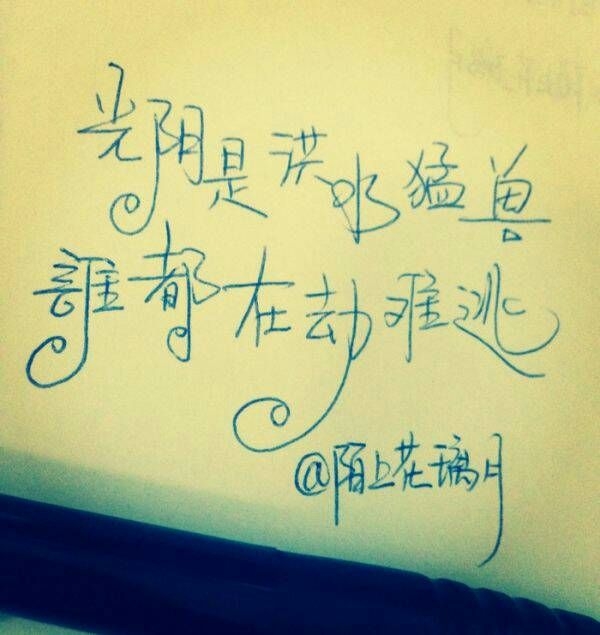 光阴是洪水猛兽
誰都在劫难逃
@陌上花璃月